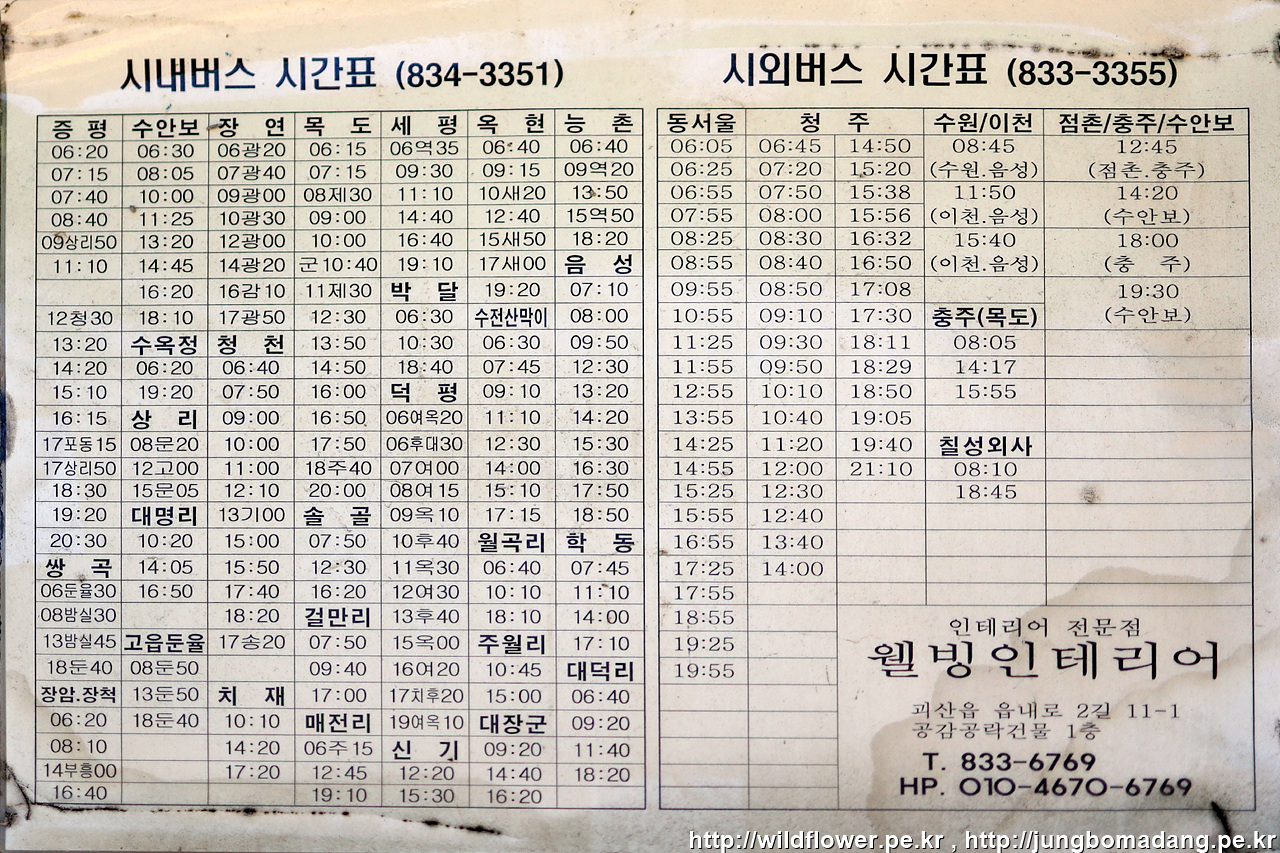 시내버스 시간표 (834-3351)
증 평 수안보 장 연 목 도 세 평 옥 현 능 촌
06:20 06:30 06광20 06:15 06역35 06:40 06:40
07:15 08:05 07광40 07:15 09:30 09:15 09역20
07:40 10:00 09광00 08제30 11:10 10새20 13:50
08:40 11:25 10광30 09:00 14:40 12:40 15역50
09상리50 13:20 12광00 10:00 16:40 15새50 18:20
11:10 14:45 14광20 군10:40 19:10 17새00 음 성
16:20 16감10 11제30 박 달 19:20 07:10
12청30 18:10 17광50 12:30 06:30 수전산막이 08:00
13:20 수옥정 청 천 13:50 10:30 06:30 09:50
14:20 06:20 06:40 14:50 18:40 07:45 12:30
15:10 19:20 07:50 16:00 덕 평 09:10 13:20
16:15 상 리 09:00 16:50 06여옥20 11:10 14:20
17포동15 08문20 10:00 17:50 06후대30 12:30 15:30
17상리50 12고00 11:00 18주40 07여00 14:00 16:30
18:30 15문05 12:10 20:00 08여15 15:10 17:50
19:20 대명리 13기00 솔 골 09옥10 17:15 18:50
20:30 10:20 15:00 07:50 10후40 월곡리 학 동
쌍 곡 14:05 15:50 12:30 11옥30 06:40 07:45
06둔율30 16:50 17:40 16:20 12여30 10:10 11:10
08밤실30 18:20 걸만리 13후40 18:10 14:00
13밤실45 고읍둔율 17송20 07:50 15옥00 주월리 17:10
18둔40 08둔50 09:40 16여20 10:45 대덕리
장암.장척 13둔50 치 재 17:00 17치후20 15:00 06:40
06:20 18둔40 10:10 매전리 19여옥10 대장군 09:20
08:10 14:20 06주15 신 기 09:20 11:40
14부흥00 17:20 12:45 12:20 14:40 18:20
16:40 19:10 15:30 16:20
시외버스 시간표 (833-3355)
동서울 청 주 수원/이천 점촌/충주/수안보
06:05 06:45 14:50 08:45 12:45
06:25 07:20 15:20 (수원.음성) (점촌.충주)
06:55 07:50 15:38 11:50 14:20
07:55 08:00 15:56 (이천.음성) (수안보)
08:25 08:30 16:32 15:40 18:00
08:55 08:40 16:50 (이천.음성) (충 주)
09:55 08:50 17:08 19:30
10:55 09:10 17:30 충주(목도) (수안보)
11:25 09:30 18:11 08:05
11:55 09:50 18:29 14:17
12:55 10:10 18:50 15:55
13:55 10:40 19:05
14:25 11:20 19:40 칠성외사
14:55 12:00 21:10 08:10
15:25 12:30 18:45
15:55 12:40
16:55 13:40
17:25 14:00
17:55
18:55
19:25
19:55
인테리어 전문점
웰빙인테리어
괴산읍 읍내로 2길 11-1
공감공락건물 1층
T. 833-6769
HP. 010-4670-6769
http://wildflower.pe.kr , http://jungbomadang.pe.kr